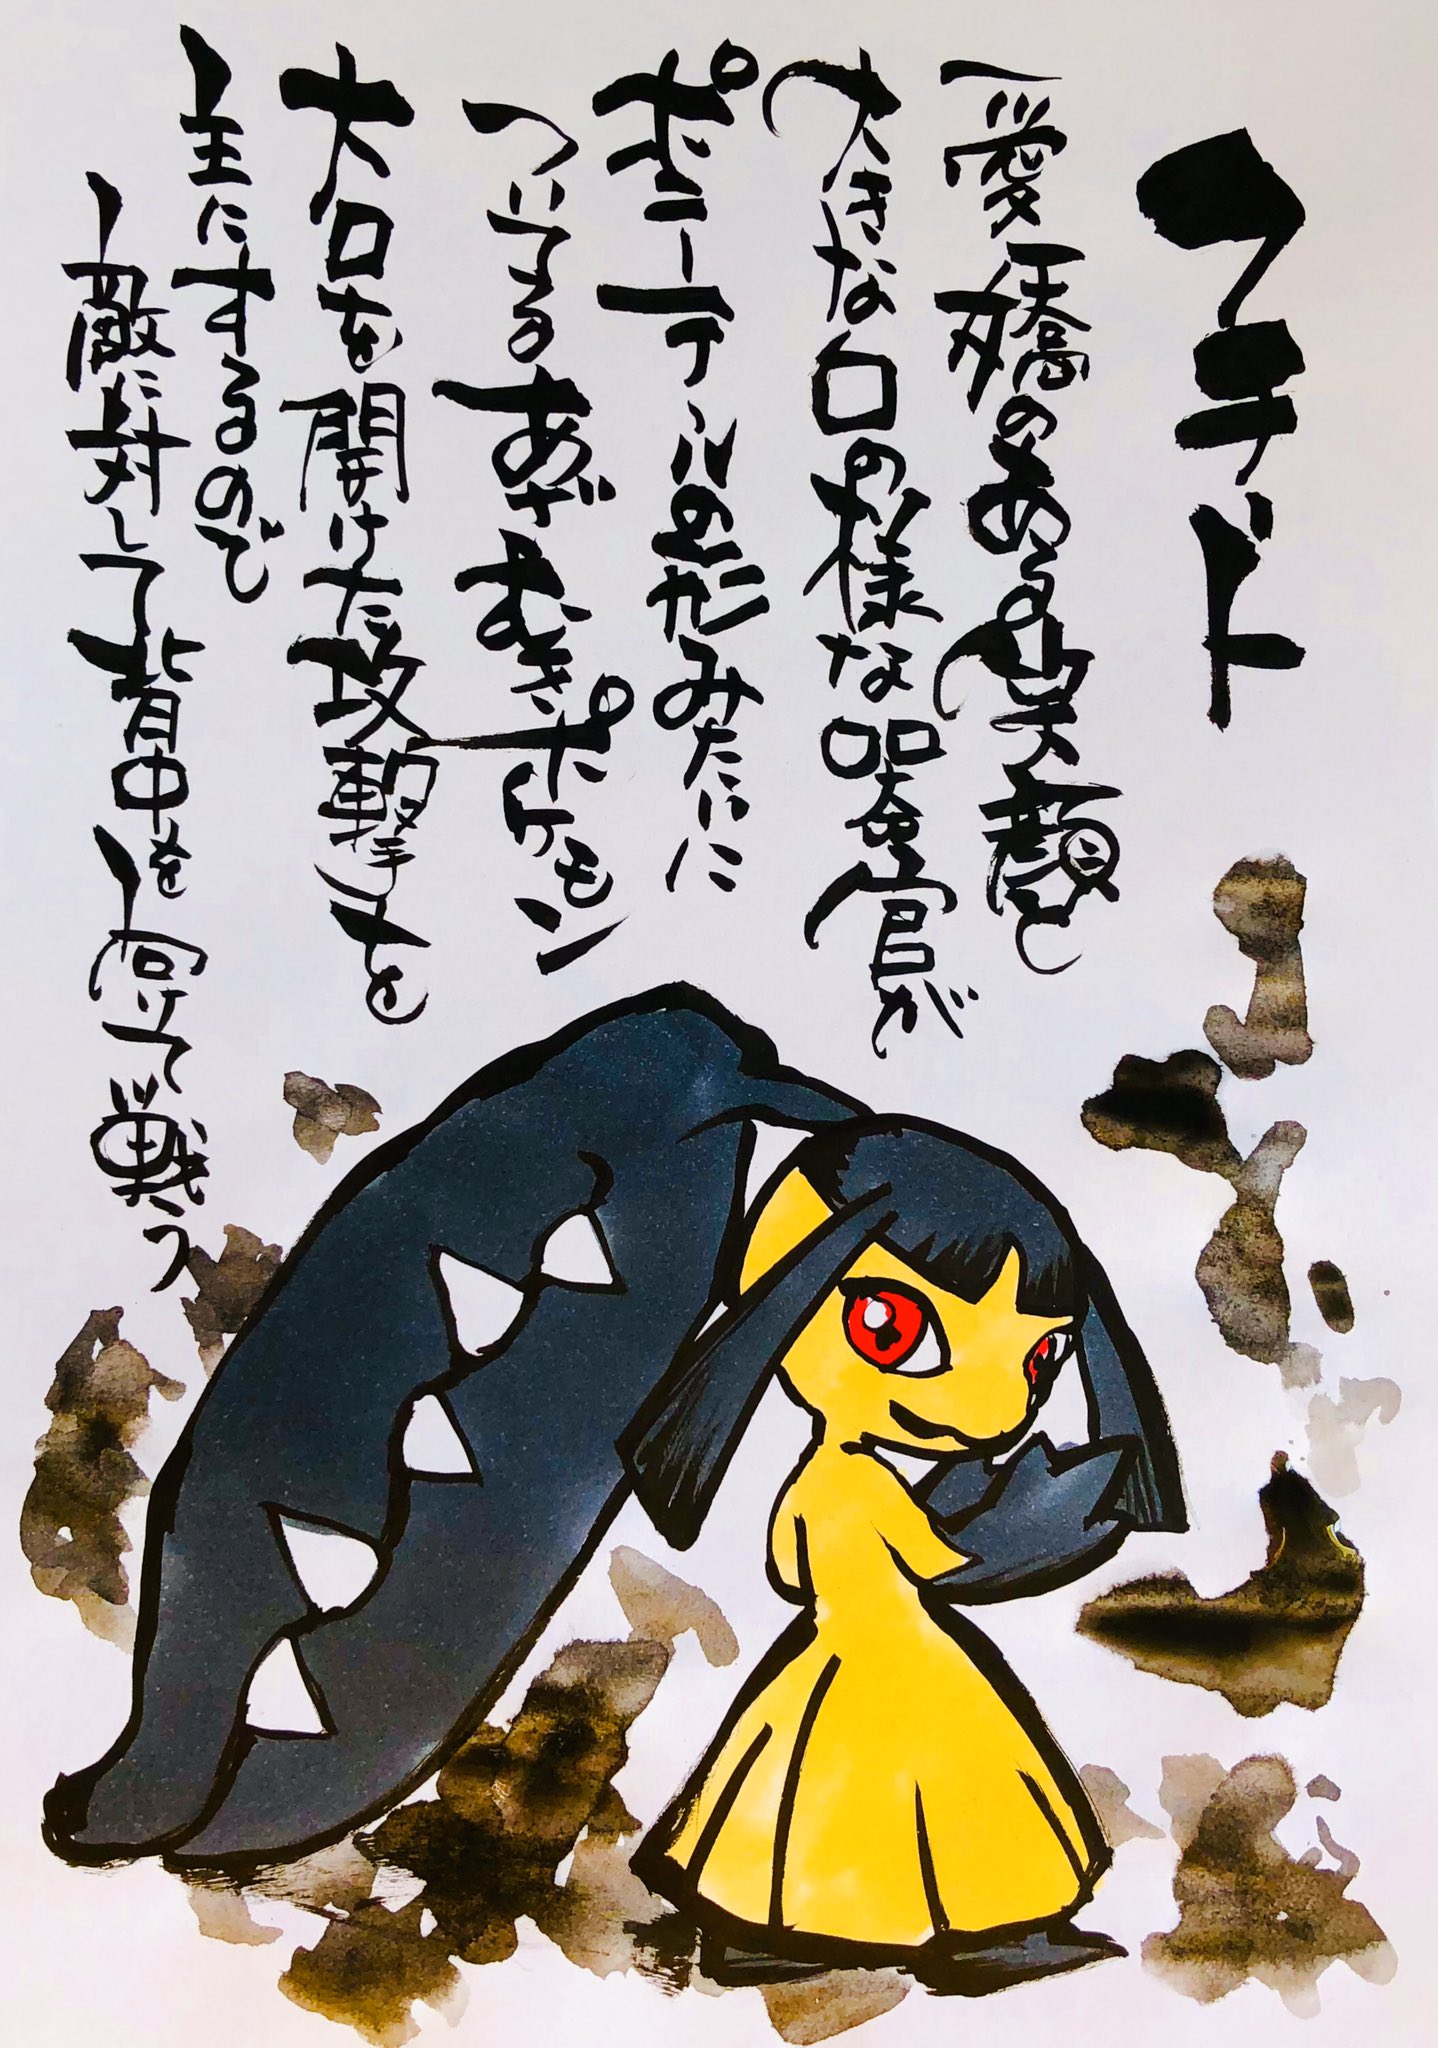 クチート
愛嬌のある笑顔と
大きな口の様な器官が
ポニーテールの形みたいに
ついてるあざむきポケモン
大口を開けた攻撃を
主にするので
敵に対して背中を向けて戦う